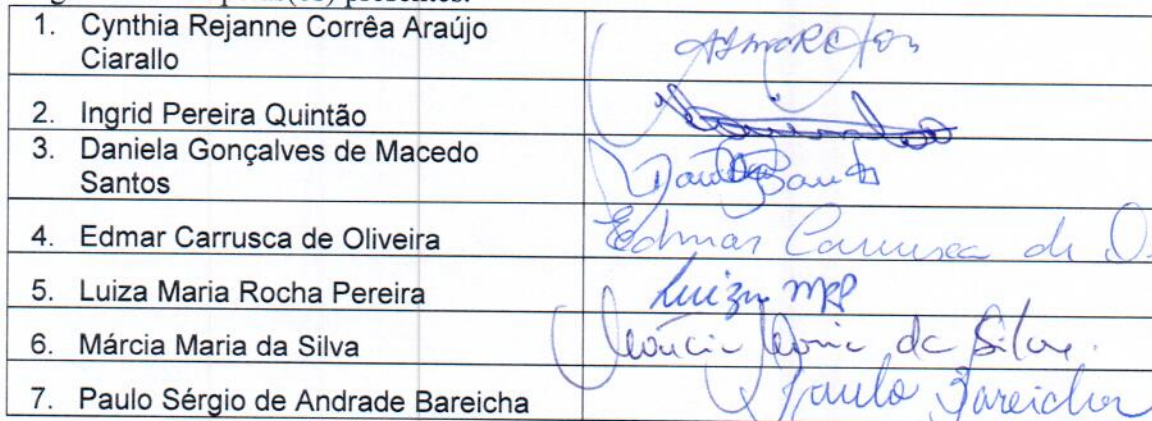 presentes.
1. Cynthia Rejanne Corrêa Araújo
Ciarallo
2. Ingrid Pereira Quintão
3. Daniela Gonçalves de Macedo
Santos
4. Edmar Carrusca de Oliveira Edmar Carrusca de O
5. Luiza Maria Rocha Pereira Luiza MRP
6. Márcia Maria da Silva Márcia Maria da Silva.
7. Paulo Sérgio de Andrade Bareicha Paulo Bareicha